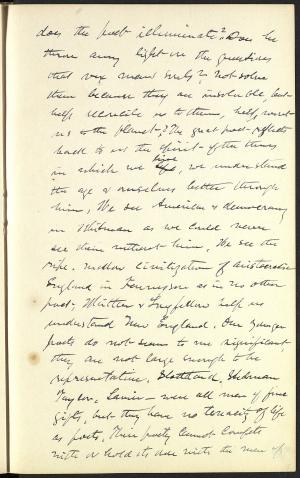 does the poet illuminate? Does he
throw any light on the questions
that vex men's souls?, not solve
them because they are insoluble, but
help reconcile us to them, help
us to the planet? The great poet reflects
back to us the spirit of the times
in which we live, we understand
the age & ourselves better through
him. We see America & democracy
in Whitman as we could never
see them without him. We see the
ripe, mellow civilization of aristocratic
England in Tennyson as in no other
poet. Whittier & Longfellow help us
understand New England. Our younger
poets do not seem to me significant,
they are not large enough to be
representative. Stoddard, Stedman
Taylor, Lanier — were all men of fine
gifts, but they have no tenacity of life
as poets. Their poetry cannot compete
with or hold its own with the men of